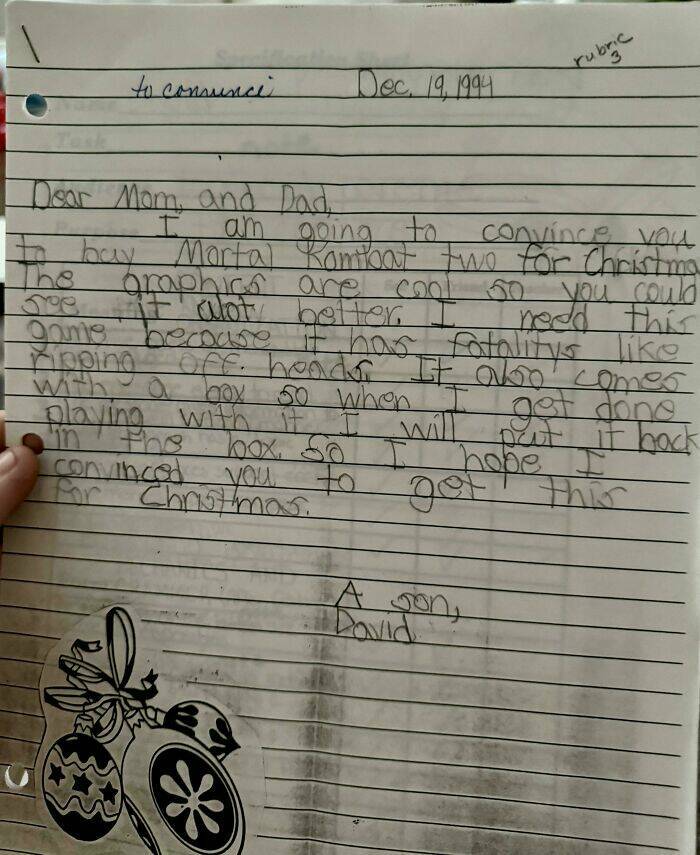 rubric
3
to convince
Dec. 19, 1994
Dear Mom, and Dad,
I am going to convince you
to buy Mortal Komboat two for Christma
The graphics are cool so you could
see it alot better. I need this
game because it has fatalitys like
ripping off heads. It also comes
with a box so when I get done
playing with it I will put it back
in the box. So I hope I
convinced you to get this
for Christmas.
A son,
David